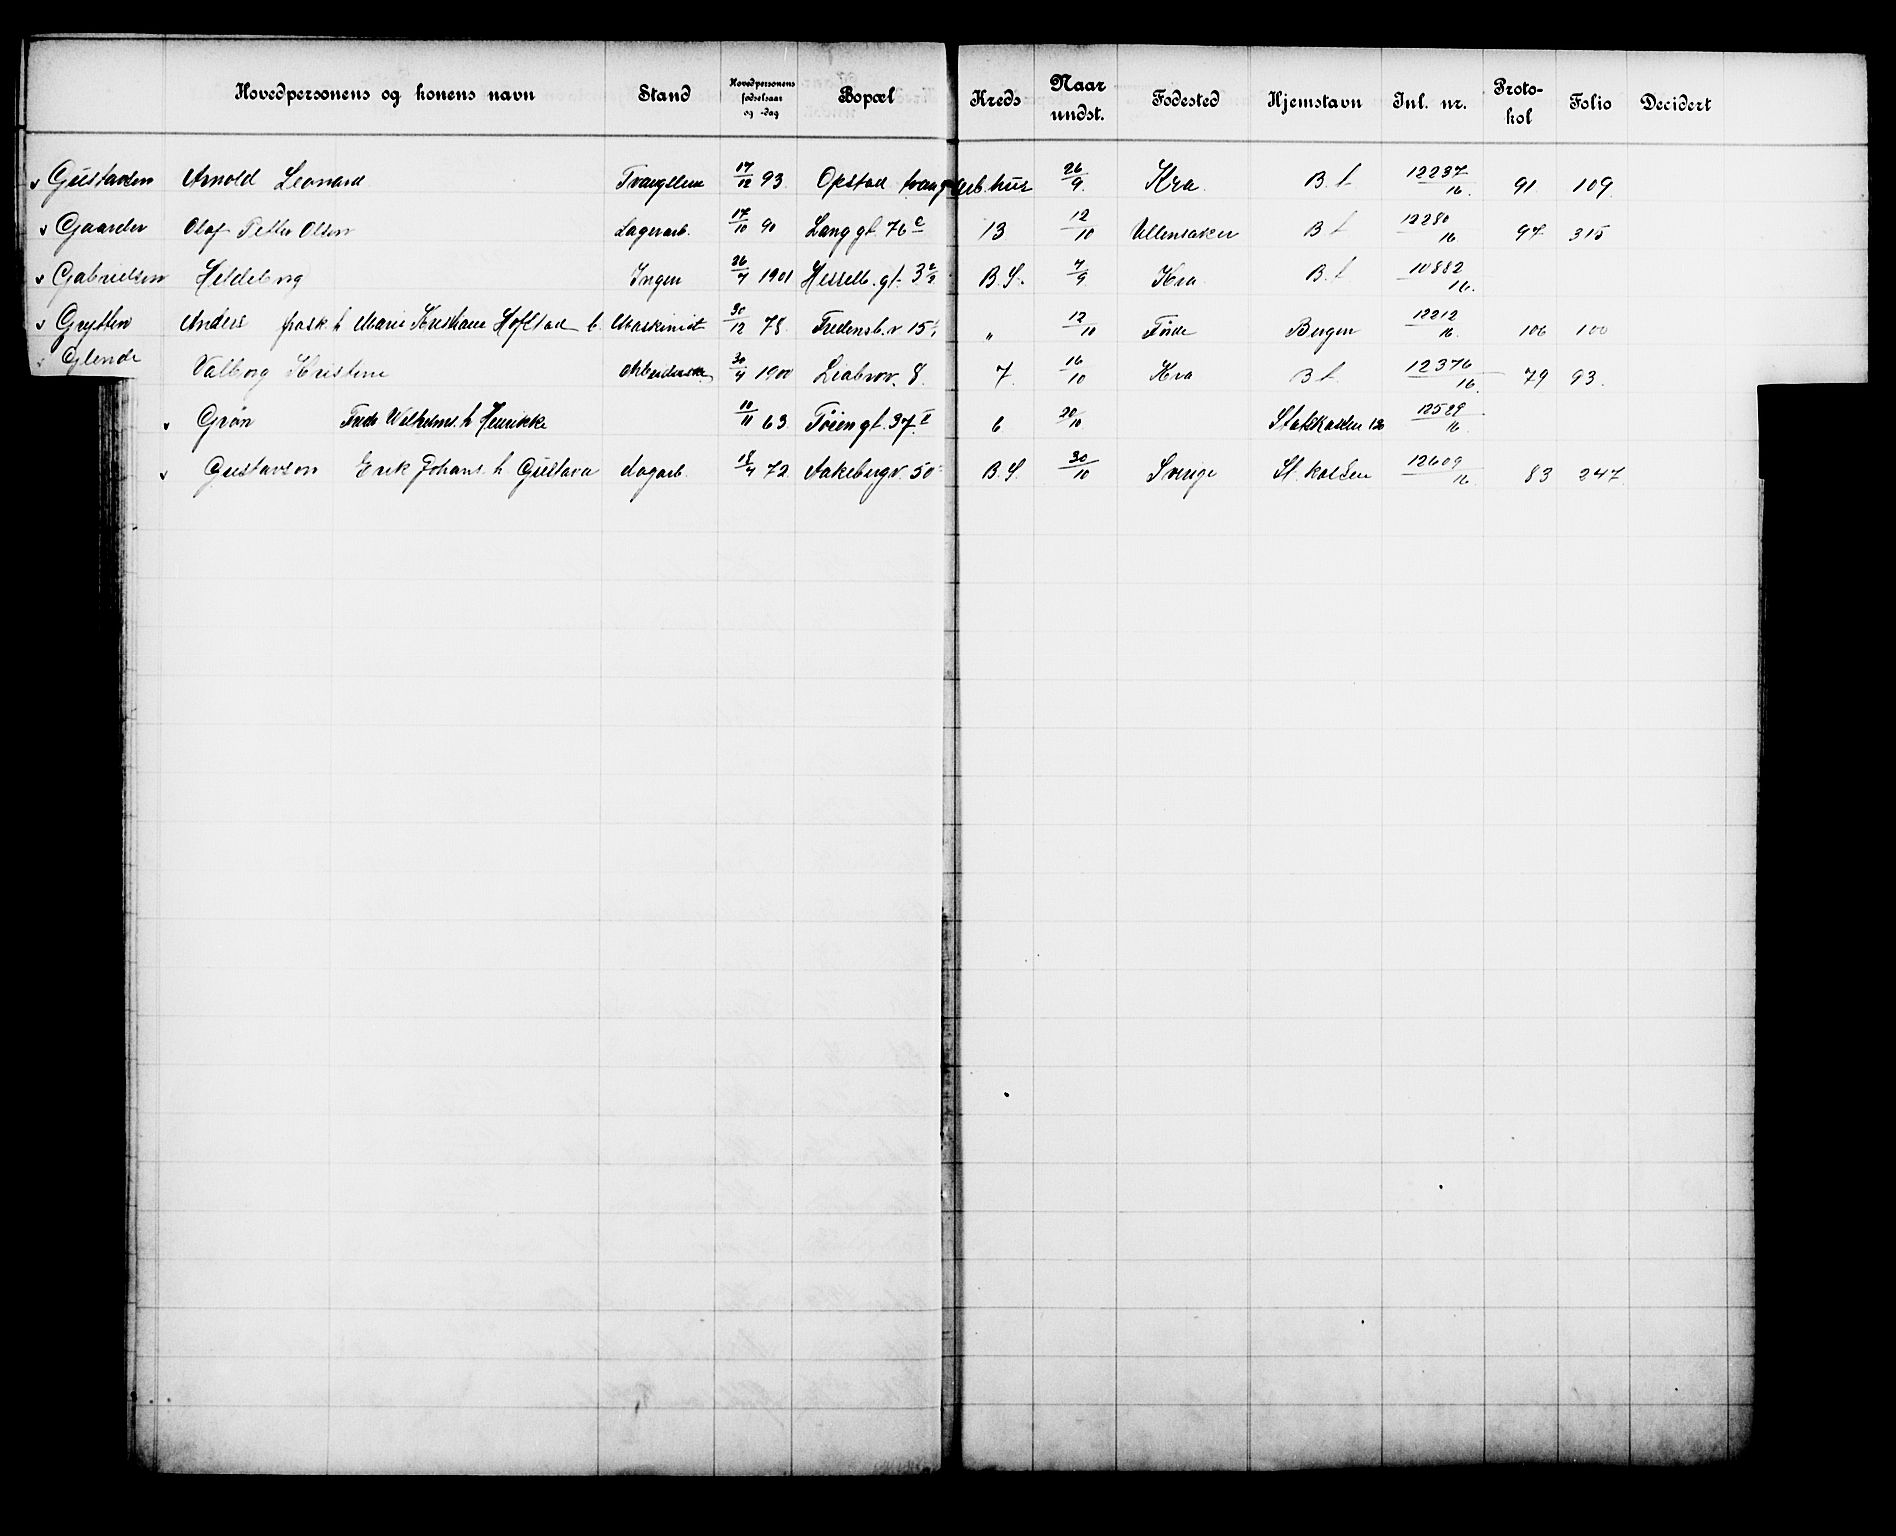 Hovedpersonens og konens navn Stand Hovedpersonens fødselsaar og -dag Bopæl Kreds Naar undst. Fødested Hjemstavn Inl. nr. Proto-kol Folio Decidert
Gustavsen Arnold Leonard 17/12 93. Opstad tvangsarb.hus 26/9. Kra. B. f. 12237/16. 91 109.
Gaarder Olaf Petter Olsen Lagerarb. 17/10 90 Langgt. 76 c 13 12/10 Ullensaker B f 12280/16. 97 315
Gabrielsen Hildeborg Ingen 26/4 1901 Hesselb. gt. 3 B. S. 7/9 Kra. B. f 10882/16.
Grytten Anders frask. h. Marie Kristiane Hofstad Maskinist 30/12 78. Fredensb. v. 15 " 12/10 Førde Bergen 12212/16. 106 100
Glende Valborg Kristine Arbeiderske 30/4 1900 Liabrov. 8. 7. 16/10 Kra B f. 12376/16. 79 93.
Grøn Fredr. Wilhelms. h. Henrikke 10/11 63. Tøiengt. 37 II 6 20/10 Statskassen 12529/16.
Gustavson Erik Johans. h. Gustava dagarb. 18/4 72. Aakebergv. 50 B. S. 30/10 Sverige St. kassen 12609/16. 83 247.